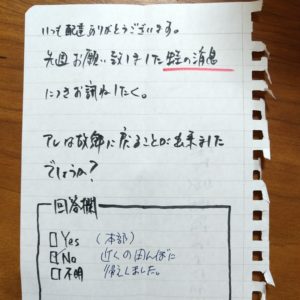 いつも配達ありがとうございます。
先週お願い致しました蛙の消息
につきお訊ねしたく。
アレは故郷に戻ることが出来ました
でしょうか?
回答欄
Yes (本部)
No 近くの田んぼに
不明 帰えしました。